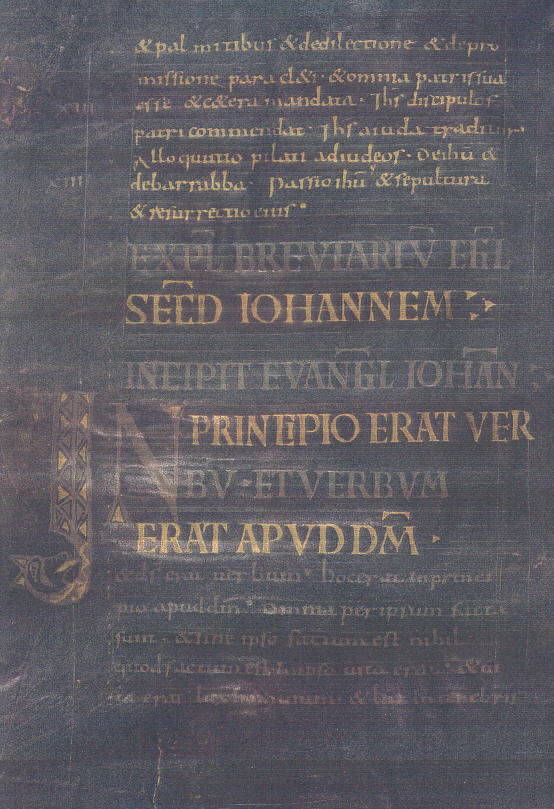 & pal mitibus & dedilectione & depro
missione paracl&i · & omnia patris sua
XIII esse & c&era mandata · Ihs discipulos
patri commendat · Ihs a iuda traditur
XIIII Alloquutio pilati ad iudeos · De ihu &
debarrabba · Passio ihu & sepultura
& resurrectio eius
EXPL BREVIARIV EGL
SECD IOHANNEM
INCIPIT EVANGL IOHAN
IN PRINCIPIO ERAT VER
BV · ET VERBVM
ERAT APVD DM
& ds erat uerbum · hoc erat inprinci
pio apud dm · Omnia per ipsum facta
sunt · & sine ipso factum est nihil
quod factum est · In ipso uita erat · & ui
ta erat lux hominum & lux in tenebris